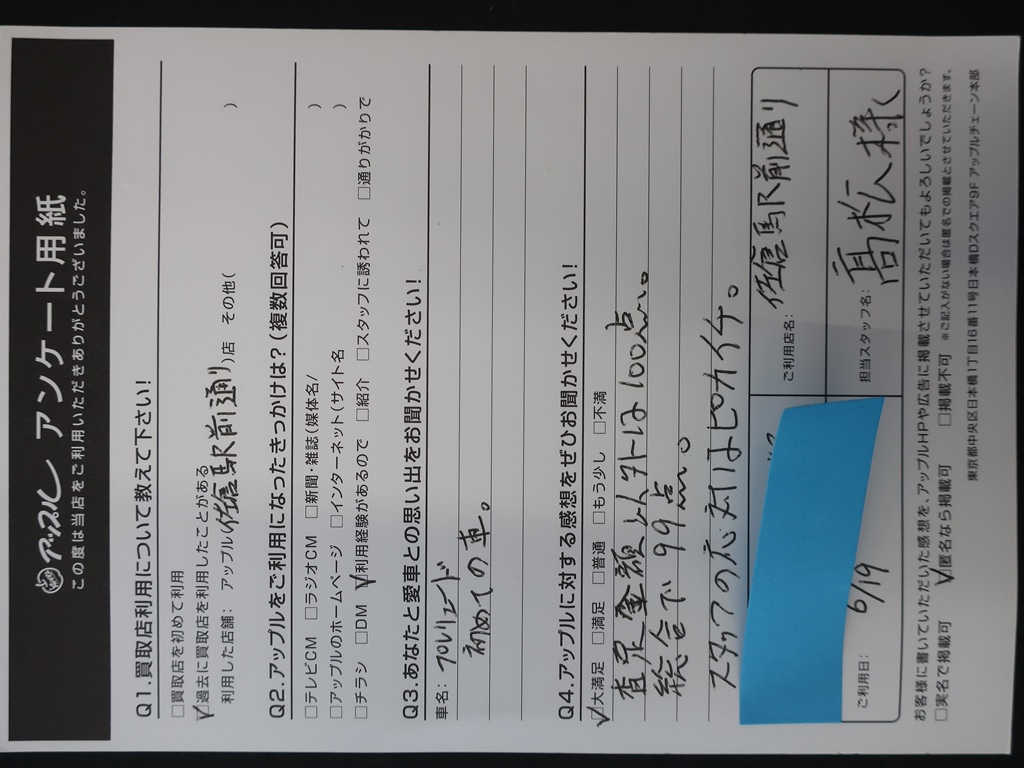 アップル アンケート用紙
この度は当店をご利用いただきありがとうございました。
Q1.買取店利用について教えて下さい!
□買取店を初めて利用
☑過去に買取店を利用したことがある
利用した店舗: アップル(佐倉駅前通り)店 その他( )
Q2.アップルをご利用になったきっかけは?(複数回答可)
□テレビCM □ラジオCM □新聞・雑誌(媒体名/ )
□アップルのホームページ □インターネット(サイト名 )
□チラシ □DM ☑利用経験があるので □紹介 □スタッフに誘われて □通りがかりで
Q3.あなたと愛車との思い出をお聞かせください!
車名: アルファード
初めての車。
Q4.アップルに対する感想をぜひお聞かせください!
☑大満足 □満足 □普通 □もう少し □不満
査定金額以外は100点。
総合で99点。
スタッフの応対はピカイチ。
ご利用店名: 佐倉駅前通り
ご利用日: 6/19
担当スタッフ名: 髙松様
お客様に書いていただいた感想を、アップルHPや広告に掲載させていただいてもよろしいでしょうか?
□実名で掲載可 ☑匿名なら掲載可 □掲載不可 ※ご記入がない場合は匿名での掲載とさせていただきます。
東京都中央区日本橋1丁目16番11号日本橋Dスクエア9F アップルチェーン本部